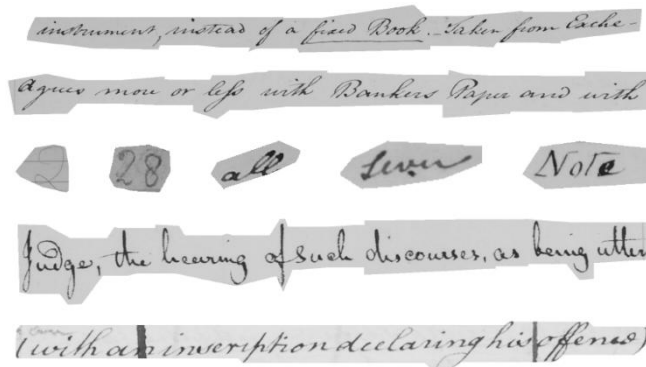 instrument, instead of a fixed Book. - Taken from Exche-
Agrees more or less with Bankers Paper and with
2 28 all Note
Judge, the hearing of such discourses, as being utter
(with an inscription declaring his offence)